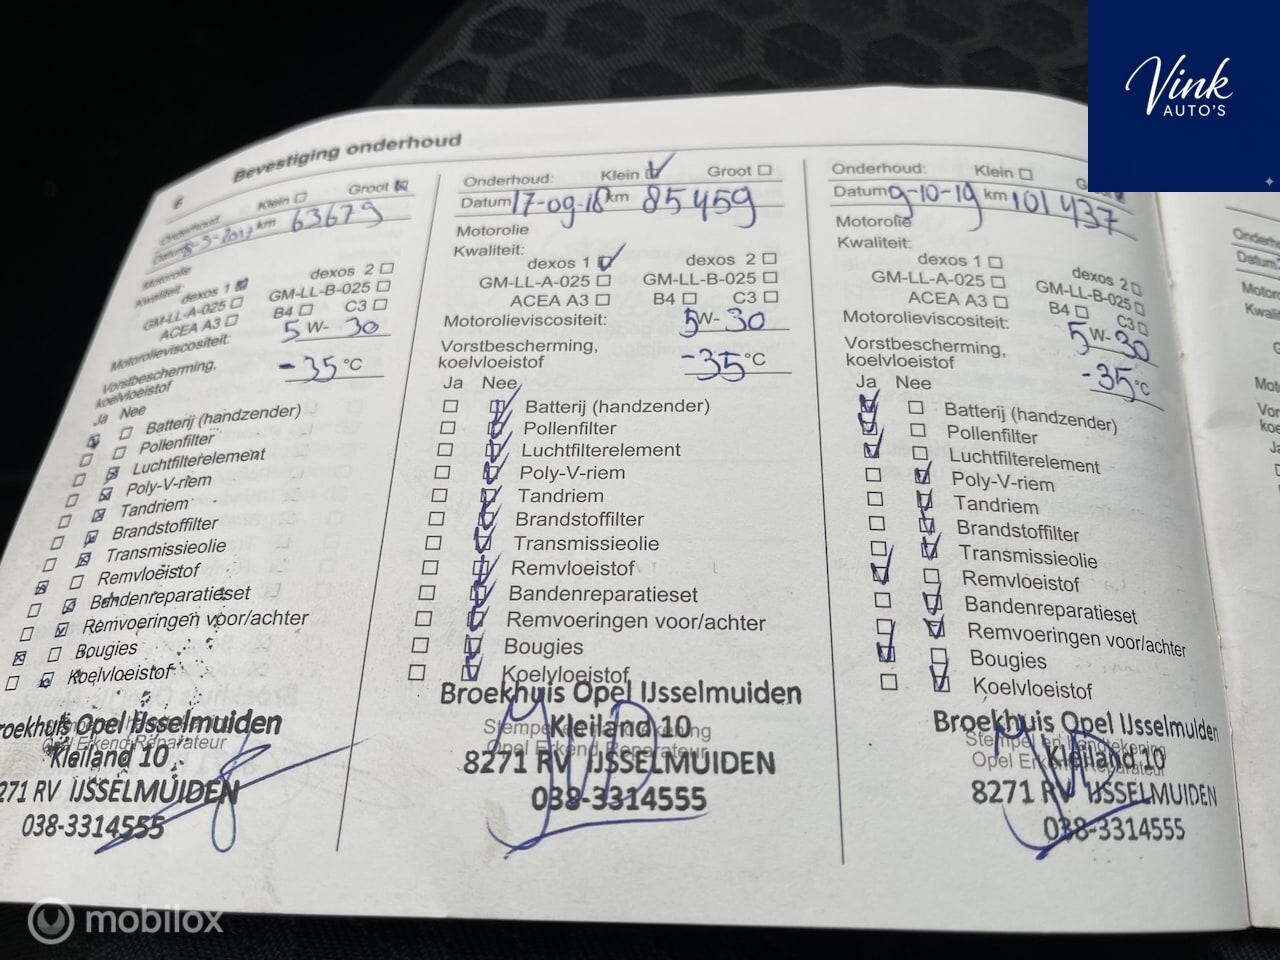 Vink
AUTO'S
6
Bevestiging onderhoud
Onderhoud: Klein Groot
Datum 8-5-2017 km 63679
Motorolie
Kwaliteit:
dexos 1 dexos 2
GM-LL-A-025 GM-LL-B-025
ACEA A3 B4 C3
Motorolieviscositeit: 5W-30
Vorstbescherming,
koelvloeistof -35 °C
Ja Nee
Batterij (handzender)
Pollenfilter
Luchtfilterelement
Poly-V-riem
Tandriem
Brandstoffilter
Transmissieolie
Remvloeistof
Bandenreparatieset
Remvoeringen voor/achter
Bougies
Koelvloeistof
roekhuis Opel IJsselmuiden
Opel Erkend Reparateur
Kleiland 10
271 RV IJSSELMUIDEN
038-3314555
Onderhoud: Klein Groot
Datum 17-09-18 km 85459
Motorolie
Kwaliteit:
dexos 1 dexos 2
GM-LL-A-025 GM-LL-B-025
ACEA A3 B4 C3
Motorolieviscositeit: 5W-30
Vorstbescherming,
koelvloeistof -35 °C
Ja Nee
Batterij (handzender)
Pollenfilter
Luchtfilterelement
Poly-V-riem
Tandriem
Brandstoffilter
Transmissieolie
Remvloeistof
Bandenreparatieset
Remvoeringen voor/achter
Bougies
Koelvloeistof
Broekhuis Opel IJsselmuiden
Kleiland 10
Opel Erkend Reparateur
8271 RV IJSSELMUIDEN
038-3314555
Onderhoud: Klein G
Datum 9-10-19 km 101437
Motorolie
Kwaliteit:
dexos 1 dexos 2
GM-LL-A-025 GM-LL-B-025
ACEA A3 B4 C3
Motorolieviscositeit: 5W-30
Vorstbescherming,
koelvloeistof -35 °C
Ja Nee
Batterij (handzender)
Pollenfilter
Luchtfilterelement
Poly-V-riem
Tandriem
Brandstoffilter
Transmissieolie
Remvloeistof
Bandenreparatieset
Remvoeringen voor/achter
Bougies
Koelvloeistof
Broekhuis Opel IJsselmuiden
Stempel en handtekening
Kleiland 10
Opel Erkend Reparateur
8271 RV IJSSELMUIDEN
038-3314555
mobilox